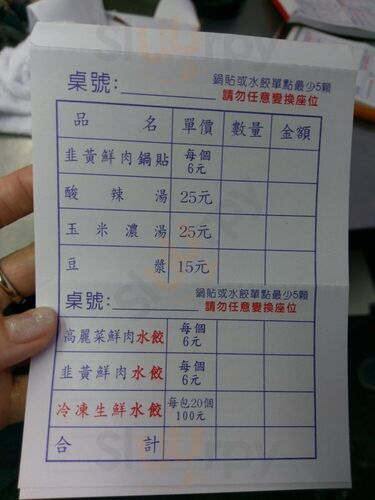 桌號:
鍋貼或水餃單點最少5顆
請勿任意變換座位
品名 單價 數量 金額
韭黃鮮肉鍋貼 每個6元
酸辣湯 25元
玉米濃湯 25元
豆漿 15元
桌號:
鍋貼或水餃單點最少5顆
請勿任意變換座位
高麗菜鮮肉水餃 每個6元
韭黃鮮肉水餃 每個6元
冷凍生鮮水餃 每包20個100元
合計